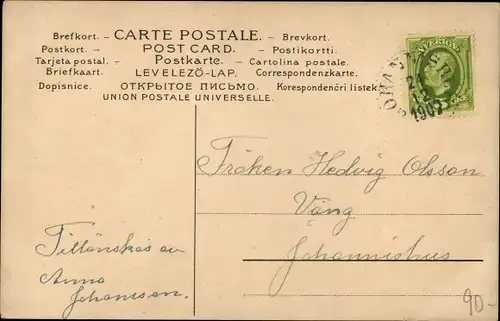 Brefkort. – CARTE POSTALE. – Brevkort.
Postkort. – POST CARD. – Postikortti.
Tarjeta postal. – Postkarte. – Cartolina postale.
Briefkaart. LEVELEZŐ-LAP. Correspondenzkarte.
Dopisnice. ОТКРЫТОЕ ПИСЬМО. Korespondenčri listek
UNION POSTALE UNIVERSELLE.
SVERIGE
1907
Fröken Hedvig Olsson.
Väng
Johannishus
Tillönskas av
Anna
Johansson.
90-